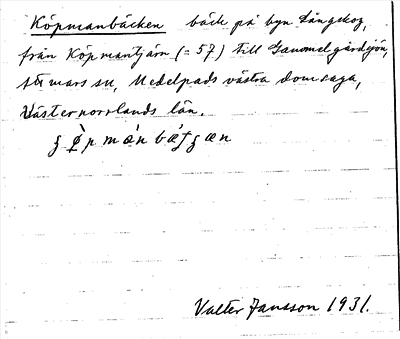 Köpmanbäcken bäck på byn Långskog,
från Köpmantjärn (= 57) till Gammelgårdsjön,
Stöde sn, Medelpads västra domsaga,
Västernorrlands län.
Valter Jansson 1931.